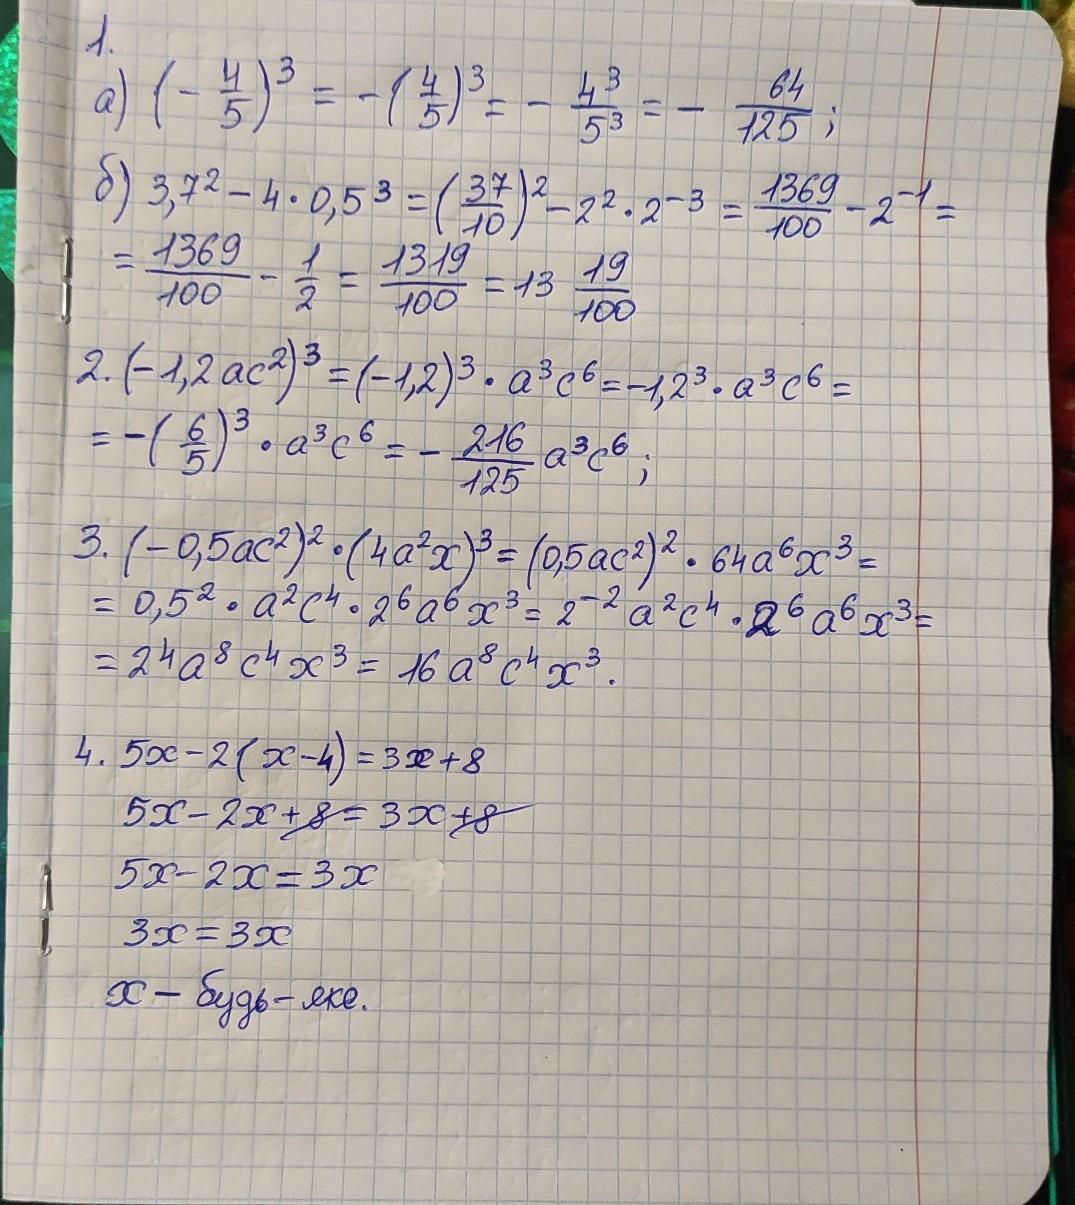 1.
а) (-4/5)³ = -(4/5)³ = - 4³/5³ = - 64/125 ;
б) 3,7² - 4 · 0,5³ = (37/10)² - 2² · 2⁻³ = 1369/100 - 2⁻¹ =
= 1369/100 - 1/2 = 1319/100 = 13 19/100
2. (-1,2ac²)³ = (-1,2)³ · a³c⁶ = -1,2³ · a³c⁶ =
= -(6/5)³ · a³c⁶ = - 216/125 a³c⁶ ;
3. (-0,5ac²)² · (4a²x)³ = (0,5ac²)² · 64a⁶x³ =
= 0,5² · a²c⁴ · 2⁶a⁶x³ = 2⁻² a²c⁴ · 2⁶a⁶x³ =
= 2⁴a⁸c⁴x³ = 16a⁸c⁴x³.
4. 5x - 2(x - 4) = 3x + 8
5x - 2x + 8 = 3x + 8
5x - 2x = 3x
3x = 3x
x - будь-яке.